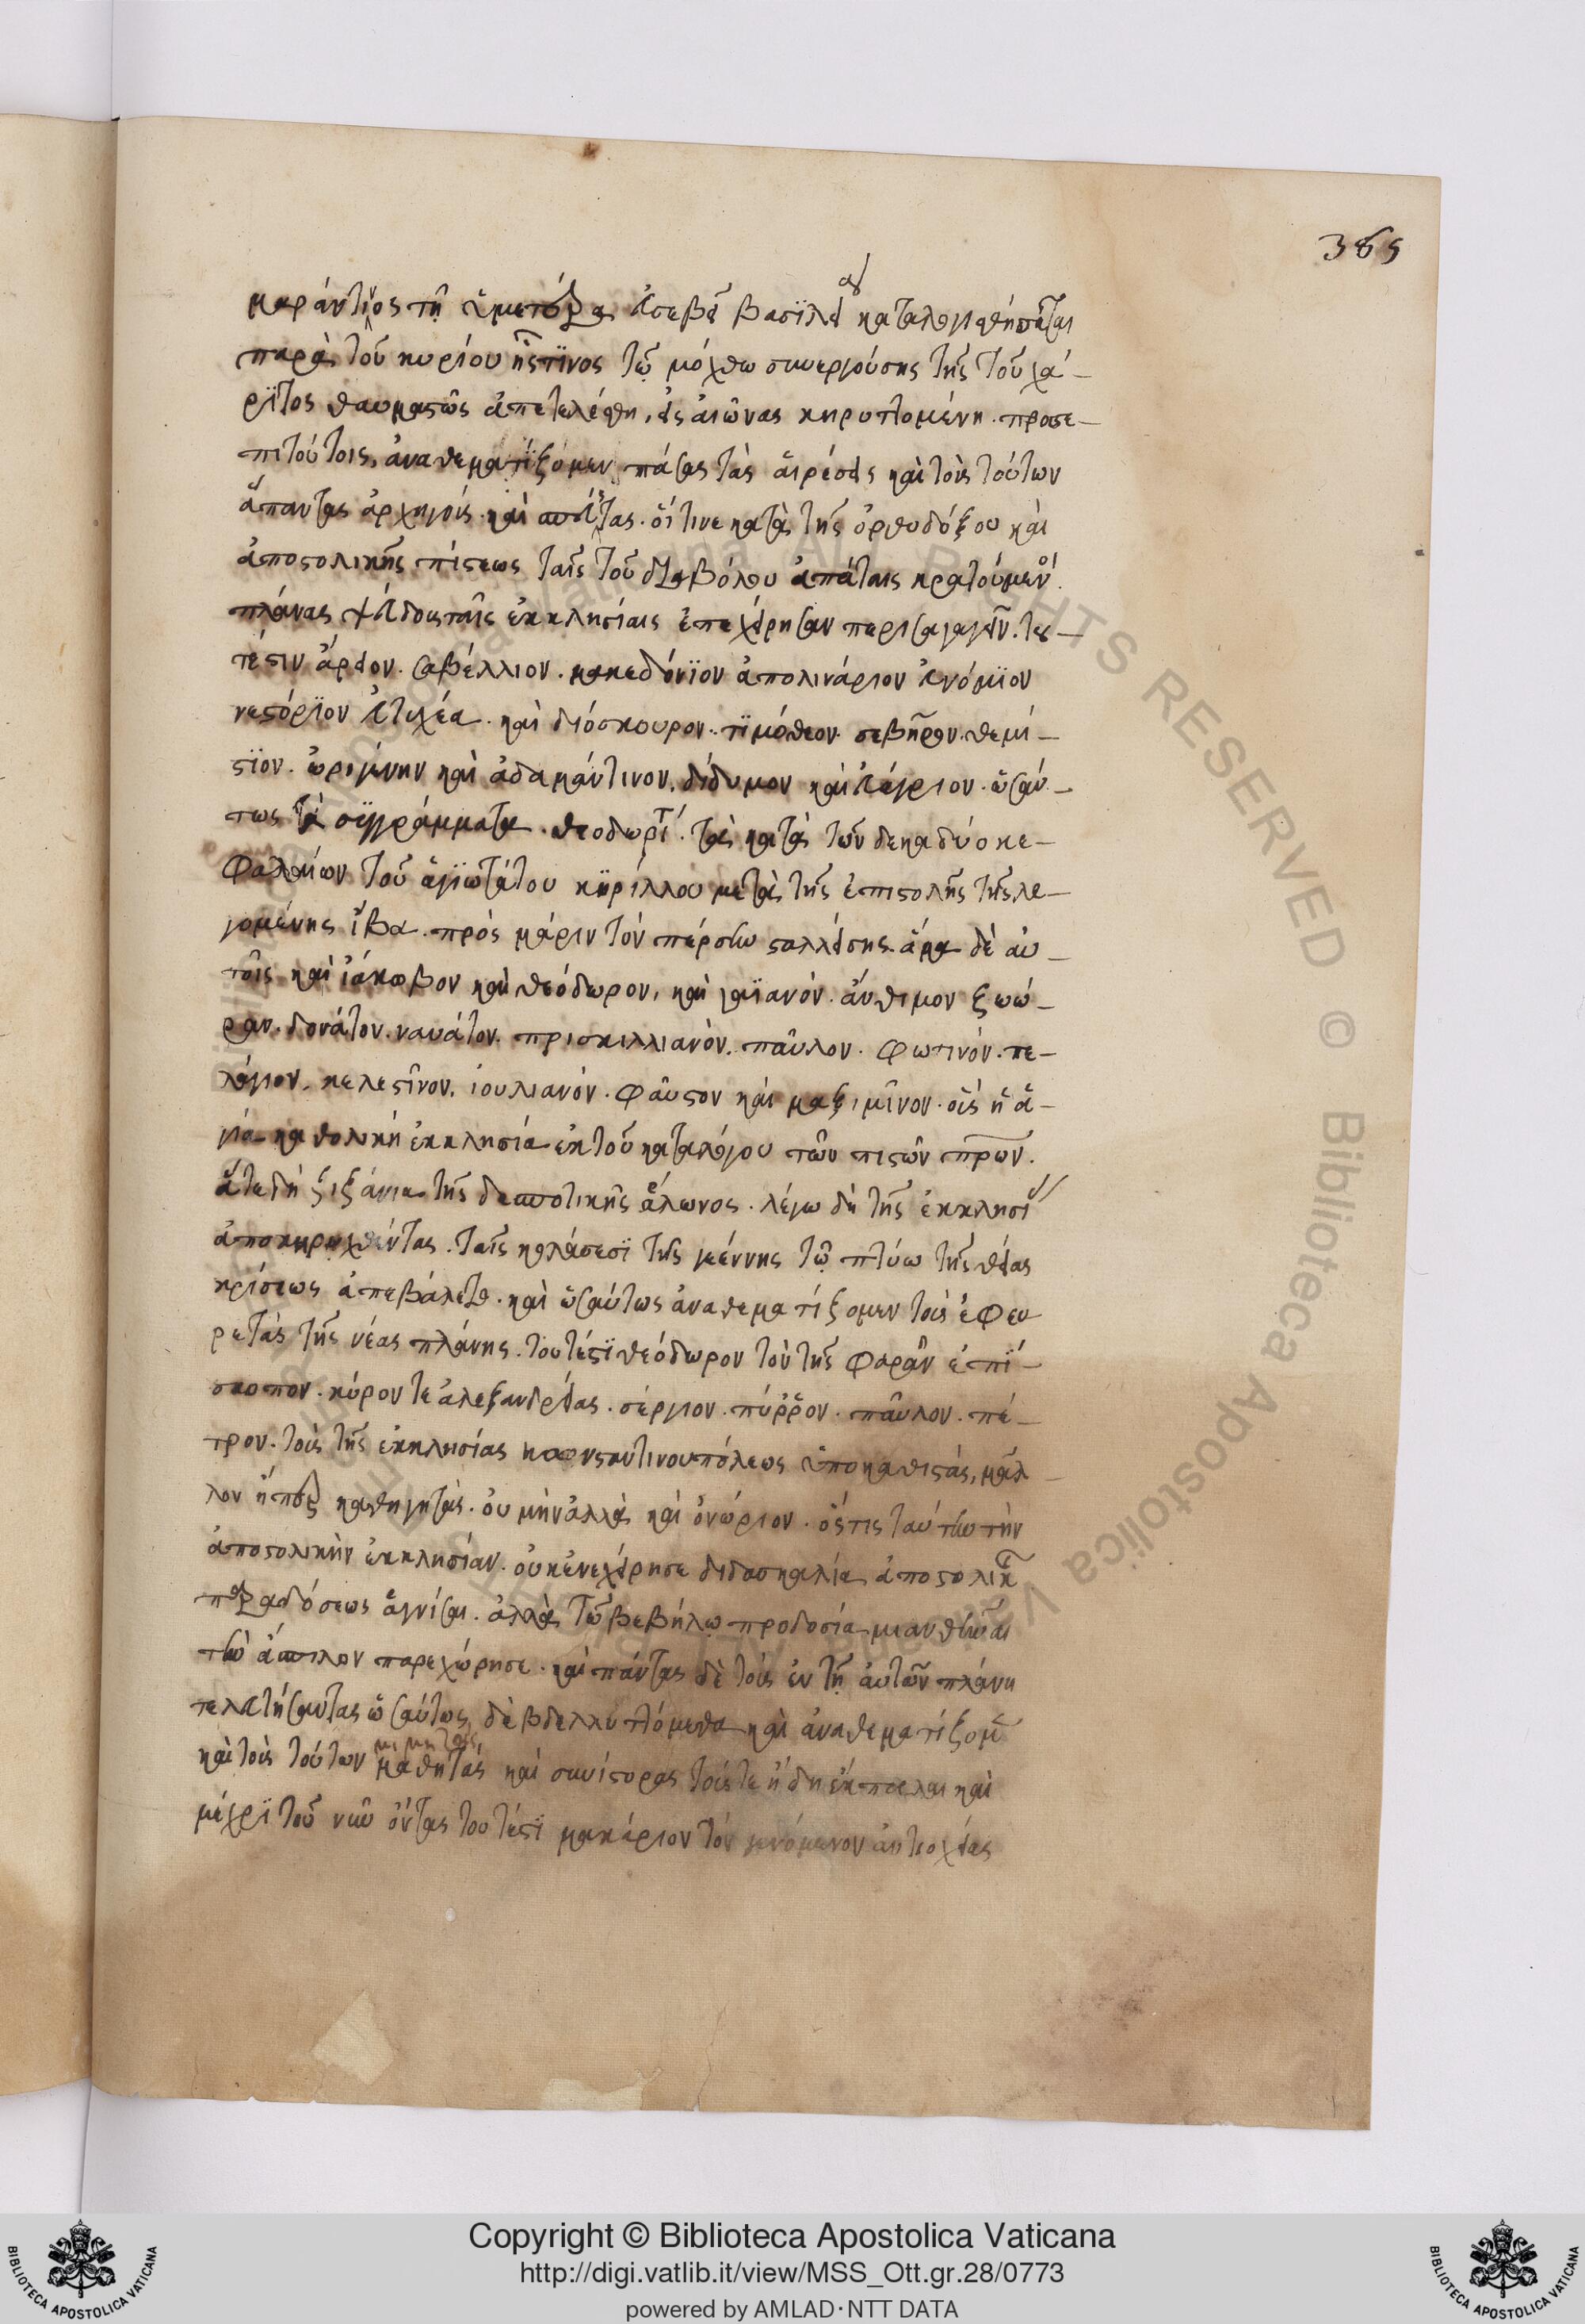 385
μαράντινος τῆ ὑμετέρα εὐσεβεῖ βασϊλεία καταλογισθήσεται
παρὰ τοῦ κυρίου ἥστϊνος τῶ μόχθω συνεργούσης τῆς τοῦ χά-
ρϊτος θαυμαστῶς ἀπετελέσθη, εἰς αἰῶνας κηρυττομένη. προσε-
πιτούτοις, ἀναθεματίζομεν πάσας τὰς αἱρέσεις καὶ τοὺς τούτων
ἅπαντας ἀρχηγούς. καὶ. οἵτινε κατὰ τῆς ὀρθοδόξου καὶ
ἀποστολικῆς πίστεως ταῖς τοῦ διαβόλου ἀπάταις κρατούμενοι.
πλάνας ψεύδους ταῖς ἐκκλησίαις ἐπεχείρησαν περισαγαγεῖν. τεσ-
τέστιν ἄρειον. σαβέλλιον. μακεδόνϊον ἀπολινάριον εὐνόμϊον
νεστόρϊον εὐτυχέα. καὶ διόσκουρον. τϊμόθεον. σεβῆρον. θεμί-
στϊον. ὠριγένην καὶ ἀδαμάντινον. δίδυμον καὶ εὐάγριον. ὡσαύ-
τως τὰ συγγράμματα. θεοδωρίτ. τὰ κατὰ τῶν δεκαδύο κε-
φαλαίων τοῦ ἁγϊωτάτου κϋρίλλου μετὰ τῆς ἐπιστολῆς τῆς λε-
γομένης ἴβα. πρὸς μάριν τὸν πέρσην σταλλείσης. ἅμα δὲ αὐ-
τοῖς καὶ ἰάκωβον καὶ θεόδωρον, καὶ γαϊανόν. ἄνθιμον ζωώ-
ραν. δονάτον. ναυάτον. πρισκιλλιανὸν. παῦλον. φωτινόν. πε-
λάγιον. κελεστῖνον. ἰουλιανόν. φαῦστον καὶ μαξιμῖνον. οὓς ἡ ἁ-
γία καθολικὴ ἐκκλησία ἐκ τοῦ καταλόγου τῶν πιστῶν πρων.
ἅτε δὴ ζιζάνια τῆς δεσποτικῆς ἅλωνος. λέγω δὴ τῆς ἐκκλησί
ἀποκηρυχθέντας. ταῖς κολάσεσϊ τῆς γεέννης τῶ πτύω τῆς θείας
κρίσεως ἀπεβάλετο. καὶ ὡσαύτως ἀναθεματίζομεν τοὺς ἐφευ
ρετὰς τῆς νέας πλάνης. τουτέστϊ θεόδωρον τὸν τῆς φαρὰν ἐπϊ-
σκοπον. κύρον τε ἀλεξανδρείας. σέργιον. πύῤῥον. παῦλον. πέ-
τρον. τοὺς τῆς ἐκκλησίας κωνσταντινουπόλεως ὑποκαθιστάς, μᾶλ-
λον ἤπερ καθηγητάς. οὐ μὴν ἀλλὰ καὶ ὀνώριον. ὅστις ταύτην τὴν
ἀποστολικὴν ἐκκλησίαν. οὐκ ἐνεχείρησε διδασκαλία ἀποστολικῆς
παραδόσεως ἁγνίσαι. ἀλλὰ τῶ βεβήλω προδοσία μιανθῆναι
τὴν ἄσπιλον παρεχώρησε. καὶ πάντας δὲ τοὺς ἐν τῆ αὐτῶν πλάνη
τελευτήσαντας ὡσαύτως δὲ βδελλυττόμεθα καὶ ἀναθεματίζομεν
μιμητὰς,
καὶ τοὺς τούτων μαθητὰς καὶ συνίστορας τούς τε ἤδη ἔκπαλαι καὶ
μέχρϊ τοῦ νῦν ὄντας τουτέστϊ μακάριον τὸν γενόμενον ἀντιοχείας
BIBLIOTECA APOSTOLICA VATICANA
Copyright © Biblioteca Apostolica Vaticana
http://digi.vatlib.it/view/MSS_Ott.gr.28/0773
powered by AMLAD·NTT DATA
BIBLIOTECA APOSTOLICA VATICANA